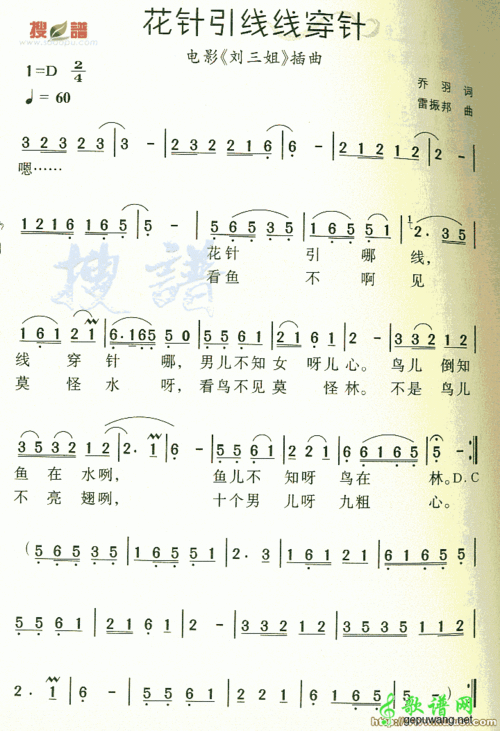 搜谱
花针引线线穿针
电影《刘三姐》插曲
1=D 2/4
♩=60
乔羽 词
雷振邦 曲
3 2 3 2 3 | 3 - | 2 3 2 2 1 6 | 6 - | 1 2 1 2 3 2 | 2 - |
嗯……
1 2 1 6 | 1 6 1 6 5 | 5 - | 5 6 5 3 5 | 1 6 5 5 1 | 2. 3 5 |
花针 引 哪 线，
看鱼 不 啊 见
搜谱
1 6 1 2 1 | 6. 1 6 5 5 0 | 5 5 6 1 | 2 1 6 1 | 3 3 2 1 |
线 穿 针 哪，男儿不知女呀儿心。鸟儿倒知
莫 怪 水 呀，看鸟不见莫 怪林。不是鸟儿
3 5 3 2 1 2 | 2. 1 | 6 - | 5 5 6 1 | 2 1 6 | 6 1 6 5 | 6 - :|
鱼 在 水咧， 鱼儿不 知呀 鸟在 林。D.C
不 亮 翅咧， 十个男 儿呀 九粗 心。
( 5 6 5 3 5 | 1 6 5 5 1 | 2. 3 | 1 2 1 2 1 | 6 1 6 5 5 |
5 5 6 1 | 2 1 6 1 | 3 3 2 1 | 3 5 3 5 1 1 2 |
2. 1 | 6 - | 5 5 6 1 | 2 1 6 | 6 1 6 5 | 6 - :|
歌谱网
gepuwang.net